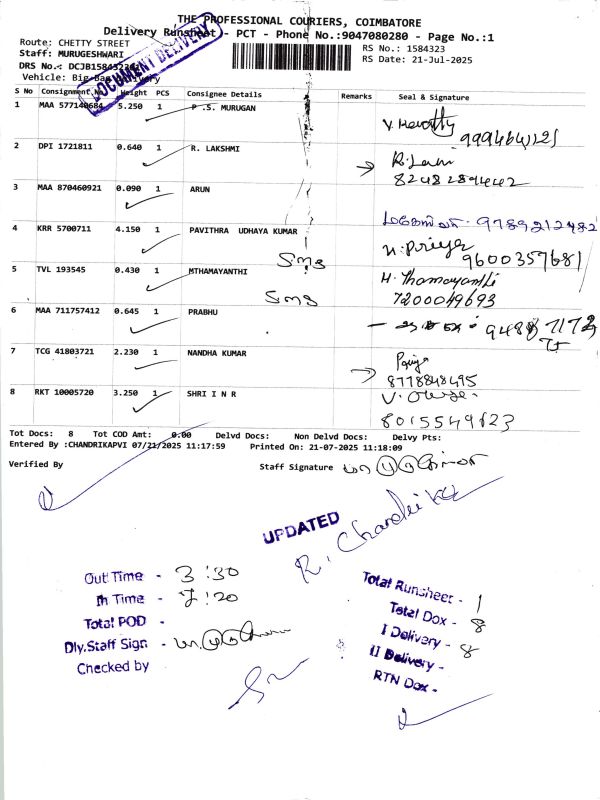 THE PROFESSIONAL COURIERS, COIMBATORE
Delivery Runsheet - PCT - Phone No.:9047080280 - Page No.:1
Route: CHETTY STREET
RS No.: 1584323
Staff: MURUGESHWARI
RS Date: 21-Jul-2025
DRS No.: DCJB1584323
DOCUMENT DELIVERY
Vehicle: Big Bag Delivery
S No Consignment No Weight PCS Consignee Details Remarks Seal & Signature
1 MAA 577140684 5.250 1 P .S. MURUGAN
2 DPI 1721811 0.640 1 R. LAKSHMI
8248289442
3 MAA 870460921 0.090 1 ARUN
9789212482
4 KRR 5700711 4.150 1 PAVITHRA UDHAYA KUMAR
N. Priya
9600357681
Sms
5 TVL 193545 0.430 1 MTHAMAYANTHI
H. Thamayanthi
7200049693
Sms
6 MAA 711757412 0.645 1 PRABHU
7 TCG 41803721 2.230 1 NANDHA KUMAR
Priya
8778848495
8 RKT 10005720 3.250 1 SHRI I N R
8015549823
Tot Docs: 8 Tot COD Amt: 0.00 Delvd Docs: Non Delvd Docs: Delvy Pts:
Entered By :CHANDRIKAPVI 07/21/2025 11:17:59 Printed On: 21-07-2025 11:18:09
Verified By
Staff Signature
UPDATED
R. Chandrika
Out Time - 3:30
In Time - 7:20
Total POD -
Dly.Staff Sign -
Checked by
Total Runsheet - 1
Total Dox - 8
I Delivery - 8
II Delivery -
RTN Dox -